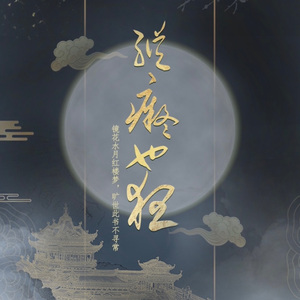 纵痴也狂
镜花水月红楼梦，旷世此书不寻常